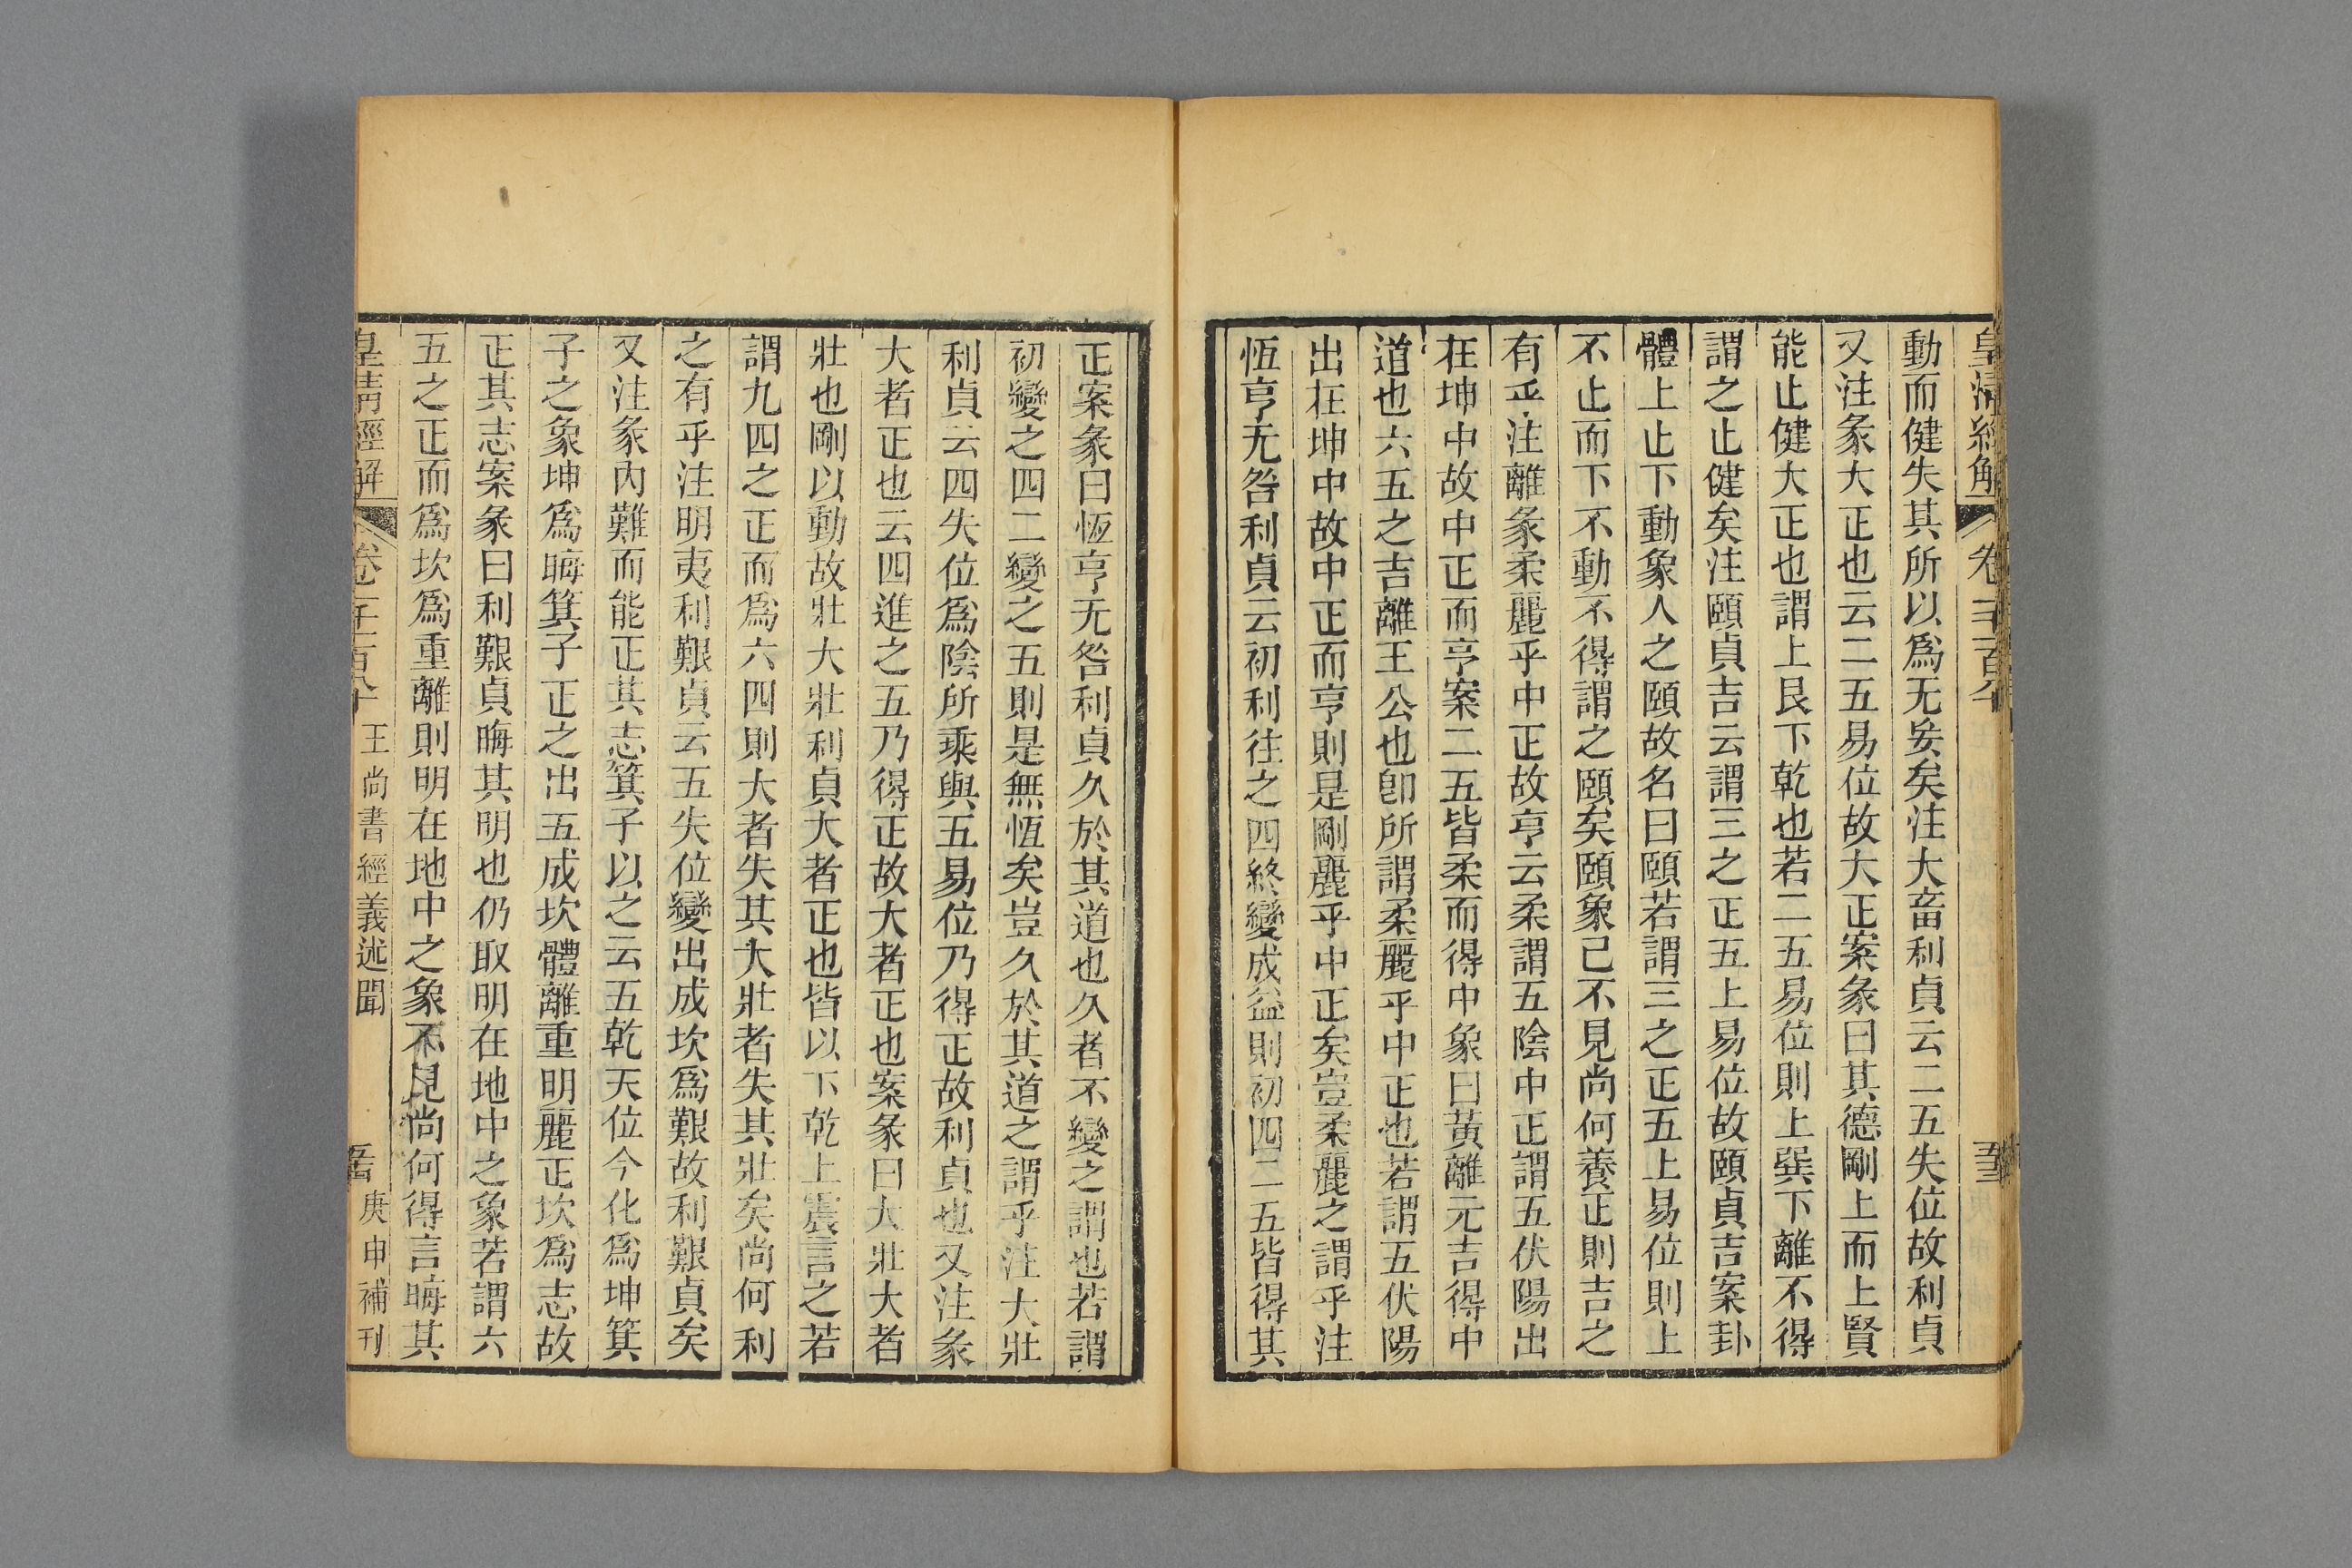 皇清經解
卷一千一百八十
動而健失其所以爲无妄矣注大畜利貞云二五失位故利貞
又注彖大正也云二五易位故大正案彖曰其德剛上而上賢
能止健大正也謂上艮下乾也若二五易位則上巽下離不得
謂之止健矣注頤貞吉云謂三之正五上易位故頤貞吉案卦
體上止下動象人之頤故名曰頤若謂三之正五上易位則上
不止而下不動不得謂之頤矣頤象已不見尚何養正則吉之
有乎注離彖柔麗乎中正故亨云柔謂五陰中正謂五伏陽出
在坤中故中正而亨案二五皆柔而得中象曰黃離元吉得中
道也六五之吉離王公也卽所謂柔麗乎中正也若謂五伏陽
出在坤中故中正而亨則是剛麗乎中正矣豈柔麗之謂乎注
恆亨无咎利貞云初利往之四終變成益則初四二五皆得其
正案彖曰恆亨无咎利貞久於其道也久者不變之謂也若謂
初變之四二變之五則是無恆矣豈久於其道之謂乎注大壯
利貞云四失位爲陰所乘與五易位乃得正故利貞也又注彖
大者正也云四進之五乃得正故大者正也案彖曰大壯大者
壯也剛以動故壯大壯利貞大者正也皆以下乾上震言之若
謂九四之正而爲六四則大者失其大壯者失其壯矣尚何利
之有乎注明夷利艱貞云五失位變出成坎爲艱故利艱貞矣
又注彖內難而能正其志箕子以之云五乾天位今化爲坤箕
子之象坤爲晦箕子正之出五成坎體離重明麗正坎爲志故
正其志案彖曰利艱貞晦其明也仍取明在地中之象若謂六
五之正而爲坎爲重離則明在地中之象不見尚何得言晦其
皇清經解
卷一千一百八十
王尚書經義述聞
庚申補刊